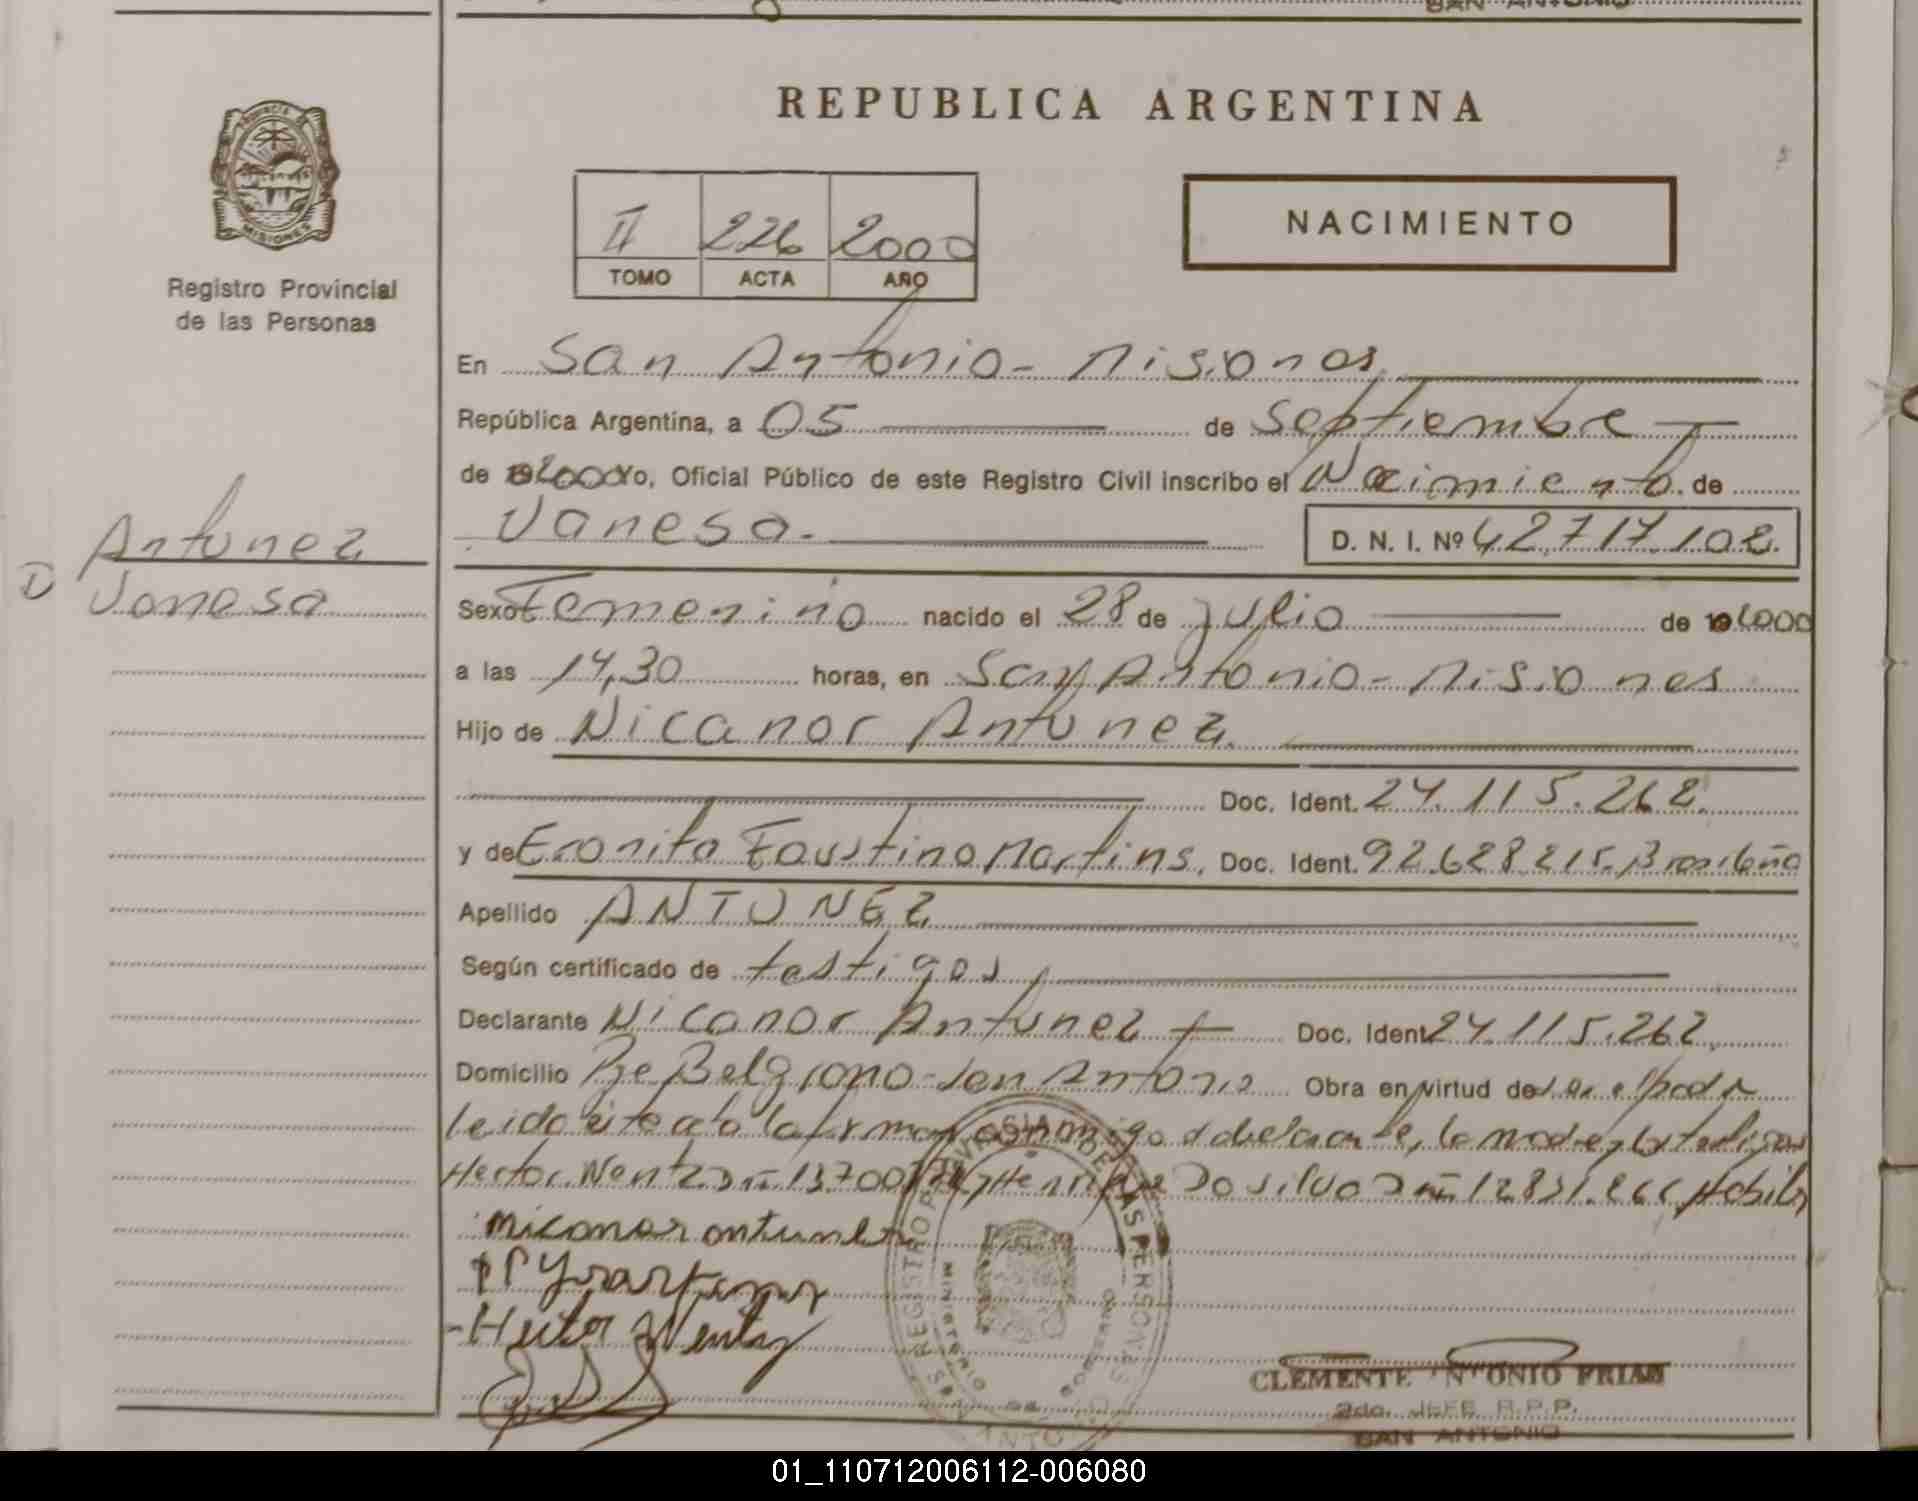 SAN ANTONIO
REPUBLICA ARGENTINA
PROVINCIA DE
MISIONES
Registro Provincial
de las Personas
II 226 2000
TOMO ACTA AÑO
NACIMIENTO
En San Antonio - Misiones
República Argentina, a 05 de Septiembre
de 2000 Yo, Oficial Público de este Registro Civil inscribo el Nacimiento de
Vanesa.
D. N. I. Nº 42.717.102.
Antunez
D Vanesa
Sexo Femenino nacido el 28 de Julio de 2000
a las 14,30 horas, en San Antonio - Misiones
Hijo de Nicanor Antunez
Doc. Ident. 24.115.262.
y de Eronita Faustino Martins, Doc. Ident. 92.628.215. Brasileña
Apellido ANTUNEZ
Según certificado de testigos
Declarante Nicanor Antunez Doc. Ident 24.115.262.
Domicilio Pje Belgrano - San Antonio Obra en virtud de
leido este acta la firman conmigo el declarante, la madre y los testigos
Hector Wentz y Henrique Da Silva
nicanor antunez
Hector Wentz
REGISTRO DE LAS PERSONAS
MINISTERIO DE GOBIERNO
CLEMENTE ANTONIO FRIAS
2do. JEFE R.P.P.
SAN ANTONIO
01_110712006112-006080